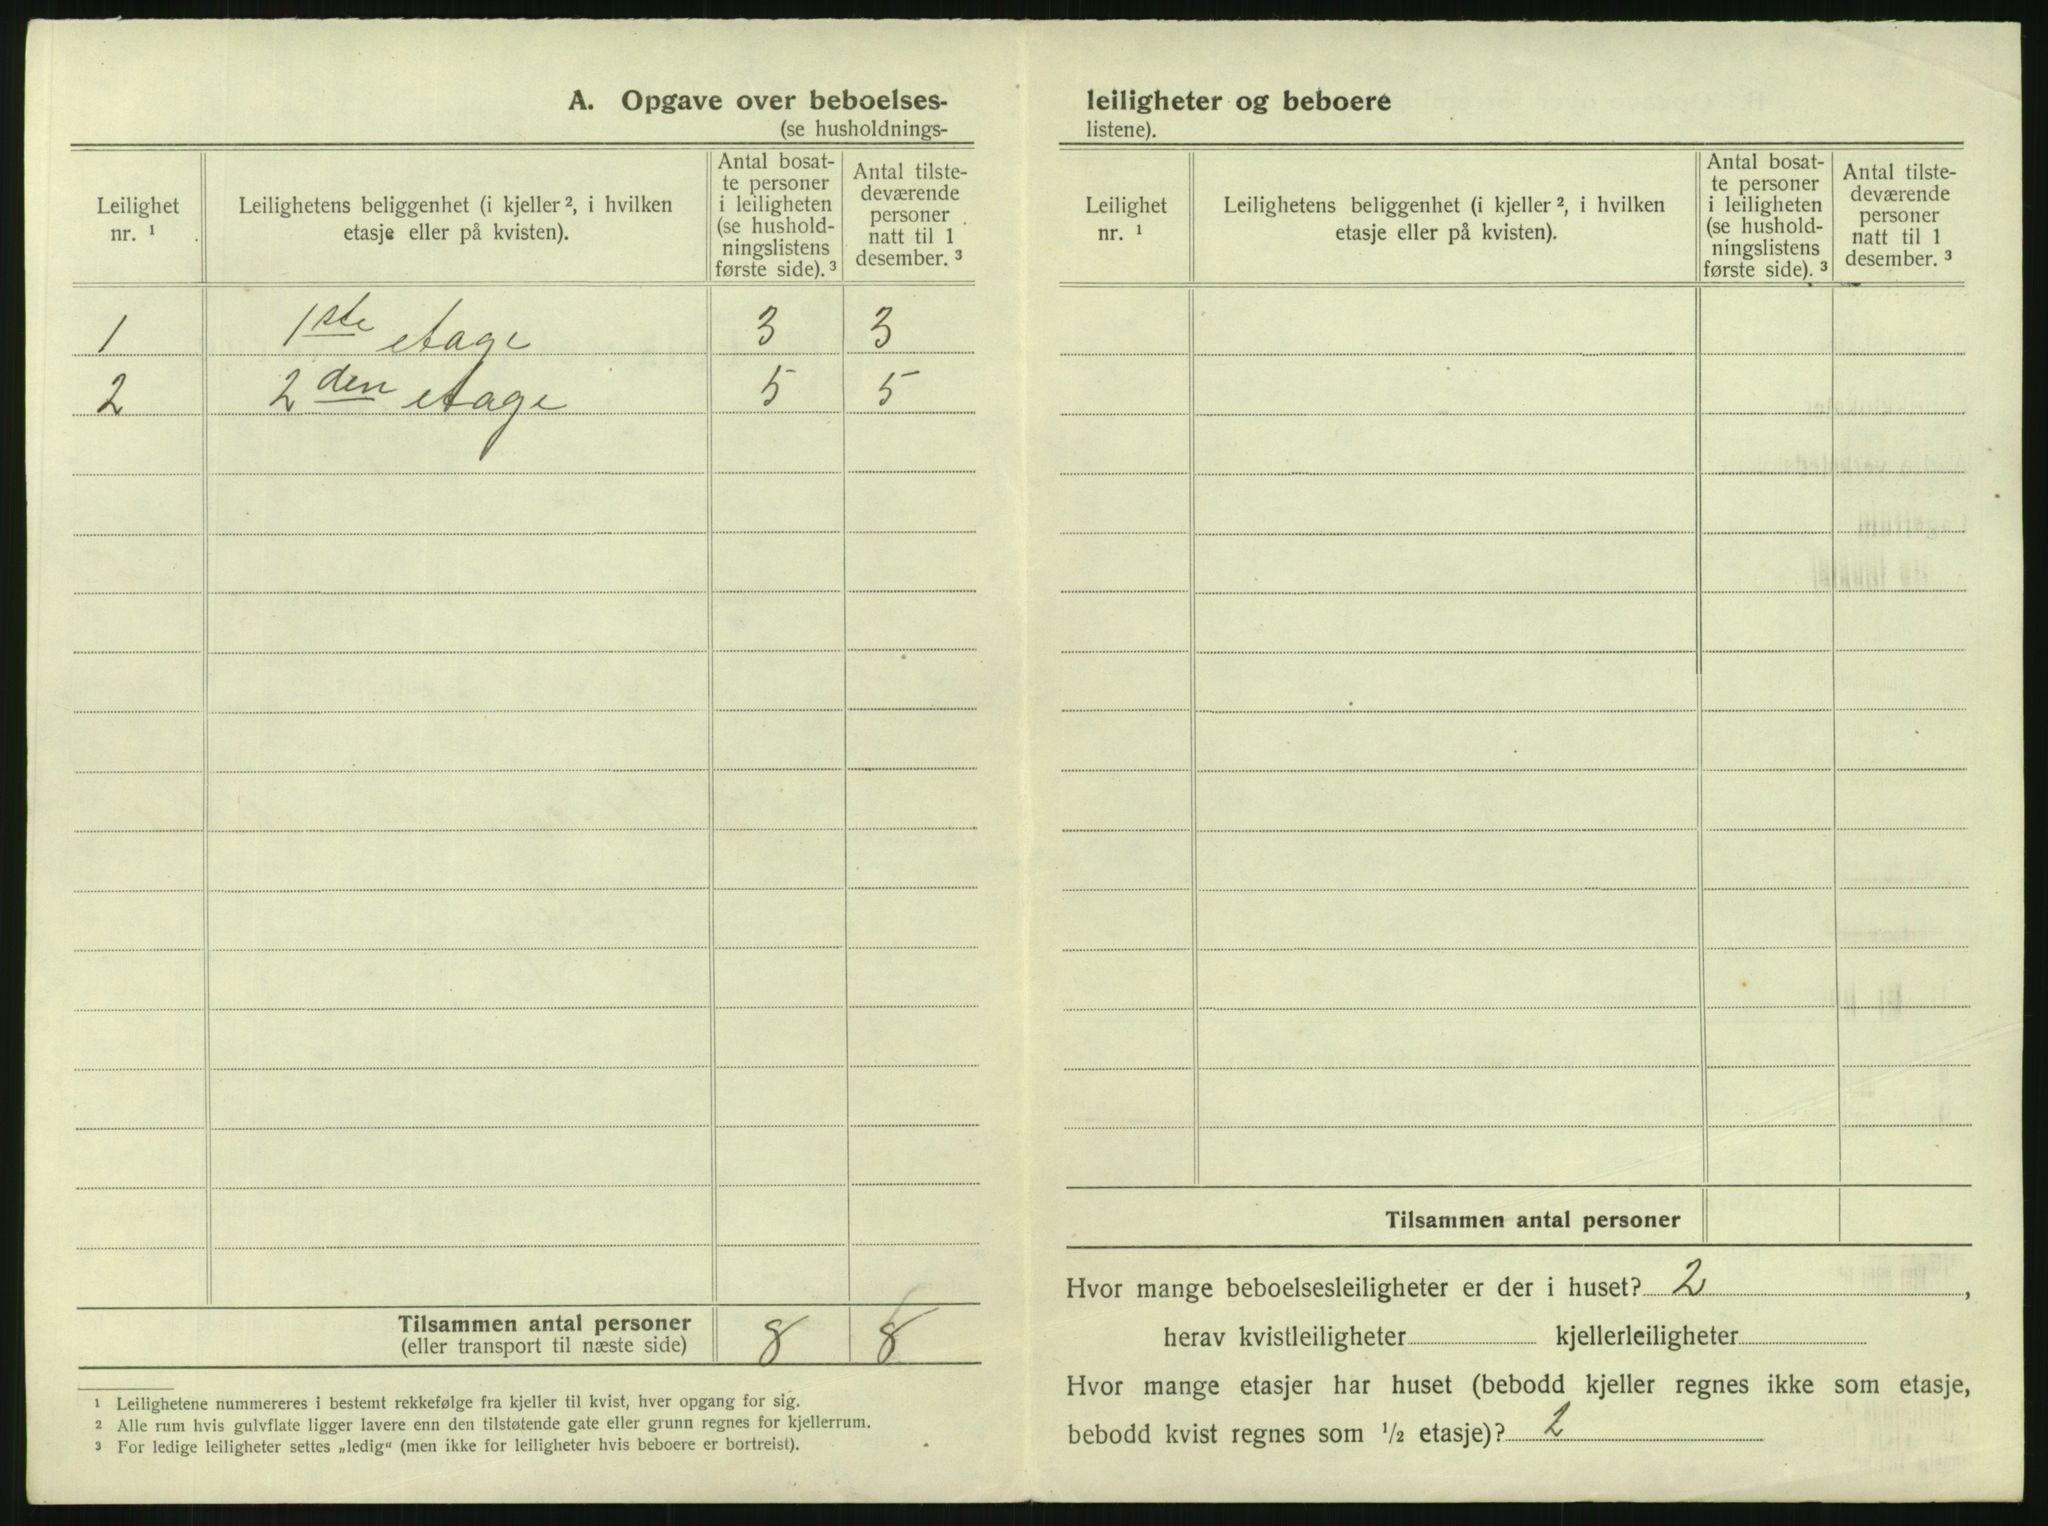 A. Opgave over beboelses-
(se husholdnings-
Leilighet
nr. ¹
Leilighetens beliggenhet (i kjeller ², i hvilken
etasje eller på kvisten).
Antal bosat-
te personer
i leiligheten
(se hushold-
ningslistens
første side). ³
Antal tilste-
deværende
personer
natt til 1
desember. ³
1 1ste etage 3 3
2 2den etage 5 5
Tilsammen antal personer
(eller transport til næste side)
8 8
¹ Leilighetene nummereres i bestemt rekkefølge fra kjeller til kvist, hver opgang for sig.
² Alle rum hvis gulvflate ligger lavere enn den tilstøtende gate eller grunn regnes for kjellerrum.
³ For ledige leiligheter settes „ledig“ (men ikke for leiligheter hvis beboere er bortreist).
leiligheter og beboere
listene).
Leilighet
nr. ¹
Leilighetens beliggenhet (i kjeller ², i hvilken
etasje eller på kvisten).
Antal bosat-
te personer
i leiligheten
(se hushold-
ningslistens
første side). ³
Antal tilste-
deværende
personer
natt til 1
desember. ³
Tilsammen antal personer
Hvor mange beboelsesleiligheter er der i huset? 2,
herav kvistleiligheter kjellerleiligheter
Hvor mange etasjer har huset (bebodd kjeller regnes ikke som etasje,
bebodd kvist regnes som ½ etasje)? 2